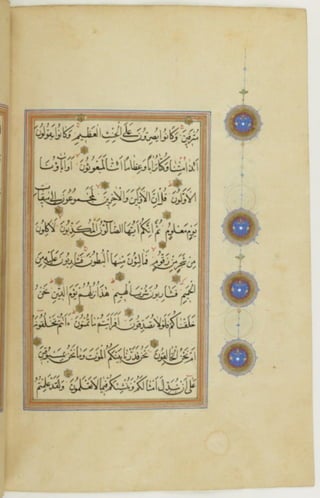 مترفين وكانوا يصرون على الحنث العظيم وكانوا يقولون
ائذا متنا وكنا ترابا وعظاما ائنا لمبعوثون اواباؤنا
الاولون قل ان الاولين والاخرين لمجموعون الى ميقات
يوم معلوم ثم انكم ايها الضالون المكذبون لاكلون
من شجر من زقوم فمالئون منها البطون فشاربون عليه من
الحميم فشاربون شرب الهيم هذا نزلهم يوم الدين نحن
خلقناكم فلولا تصدقون افرايتم ما تمنون ءانتم تخلقونه
ام نحن الخالقون نحن قدرنا بينكم الموت وما نحن بمسبوقين
على ان نبدل امثالكم وننشئكم فيما لا تعلمون ولقد علمتم